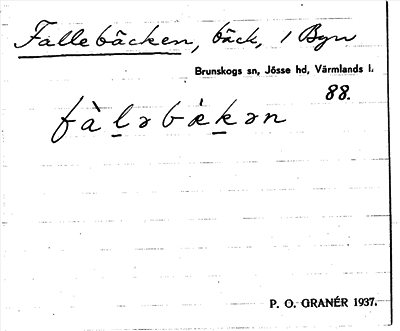 Fallebäcken, bäck, i Byn
Brunskogs sn, Jösse hd, Värmlands l.
88.
fàḻəbæ̀ḵən
P. O. GRANÉR 1937.